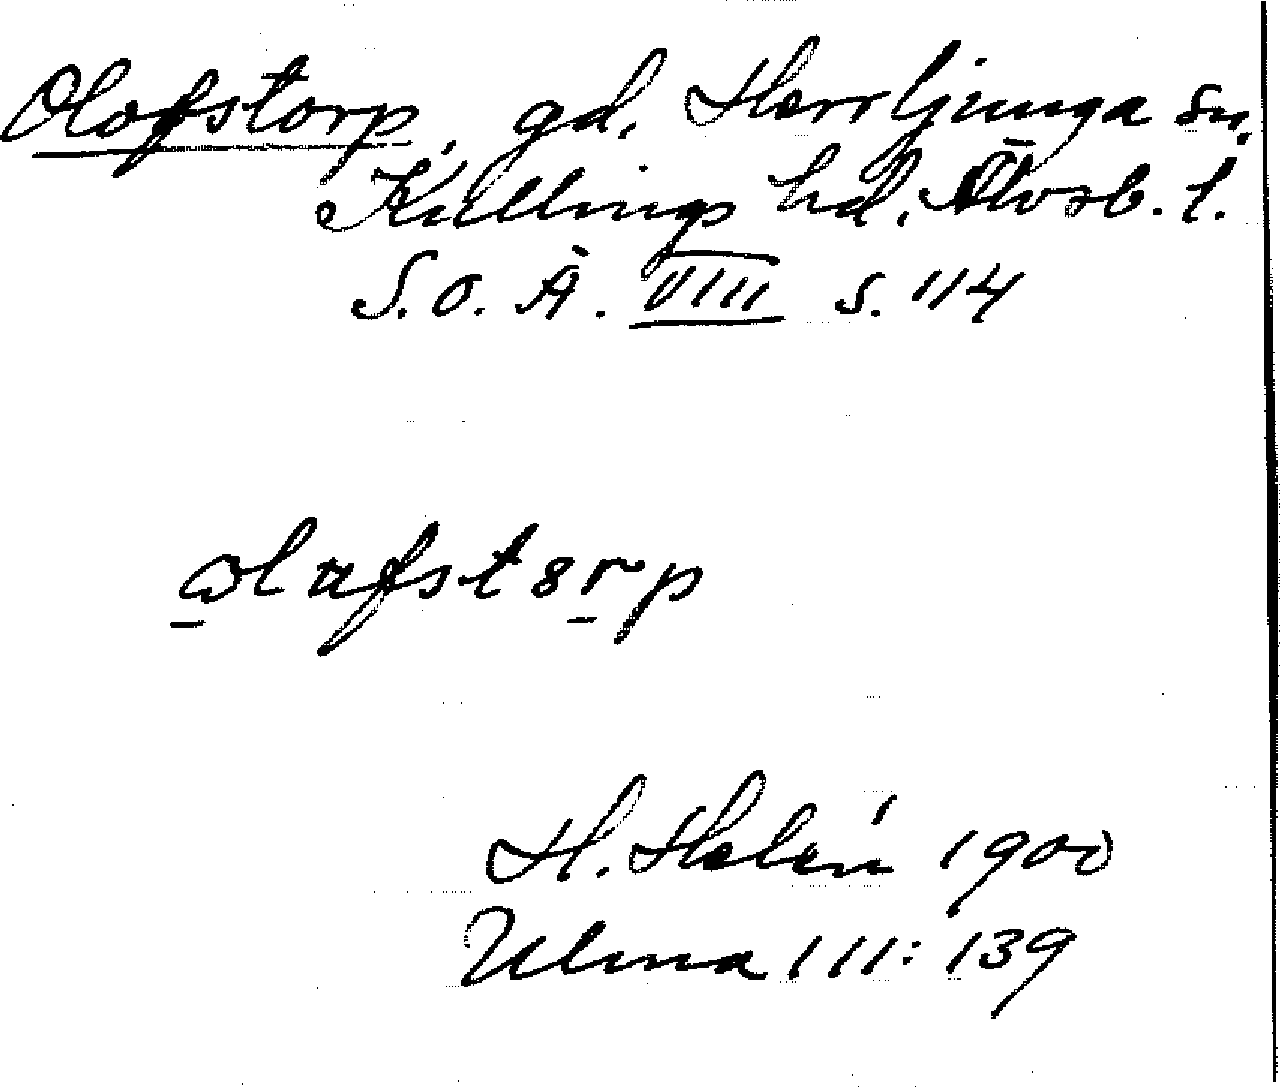 Olofstorp, gd, Herrljunga sn,
Kullings hd, Älvsb. l.
S. O. Ä. VIII s. 114
olafstorp
H. Helén 1900
Ulma 111: 139